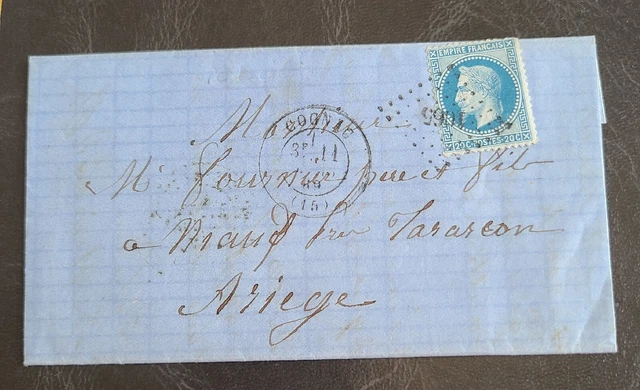 EMPIRE FRANÇAIS
20 C. POSTES 20 C.
COGNAC
3E
11
69
(15)
Monsieur
M. Fournier père et fils
a Niaux près Tarascon
Ariege